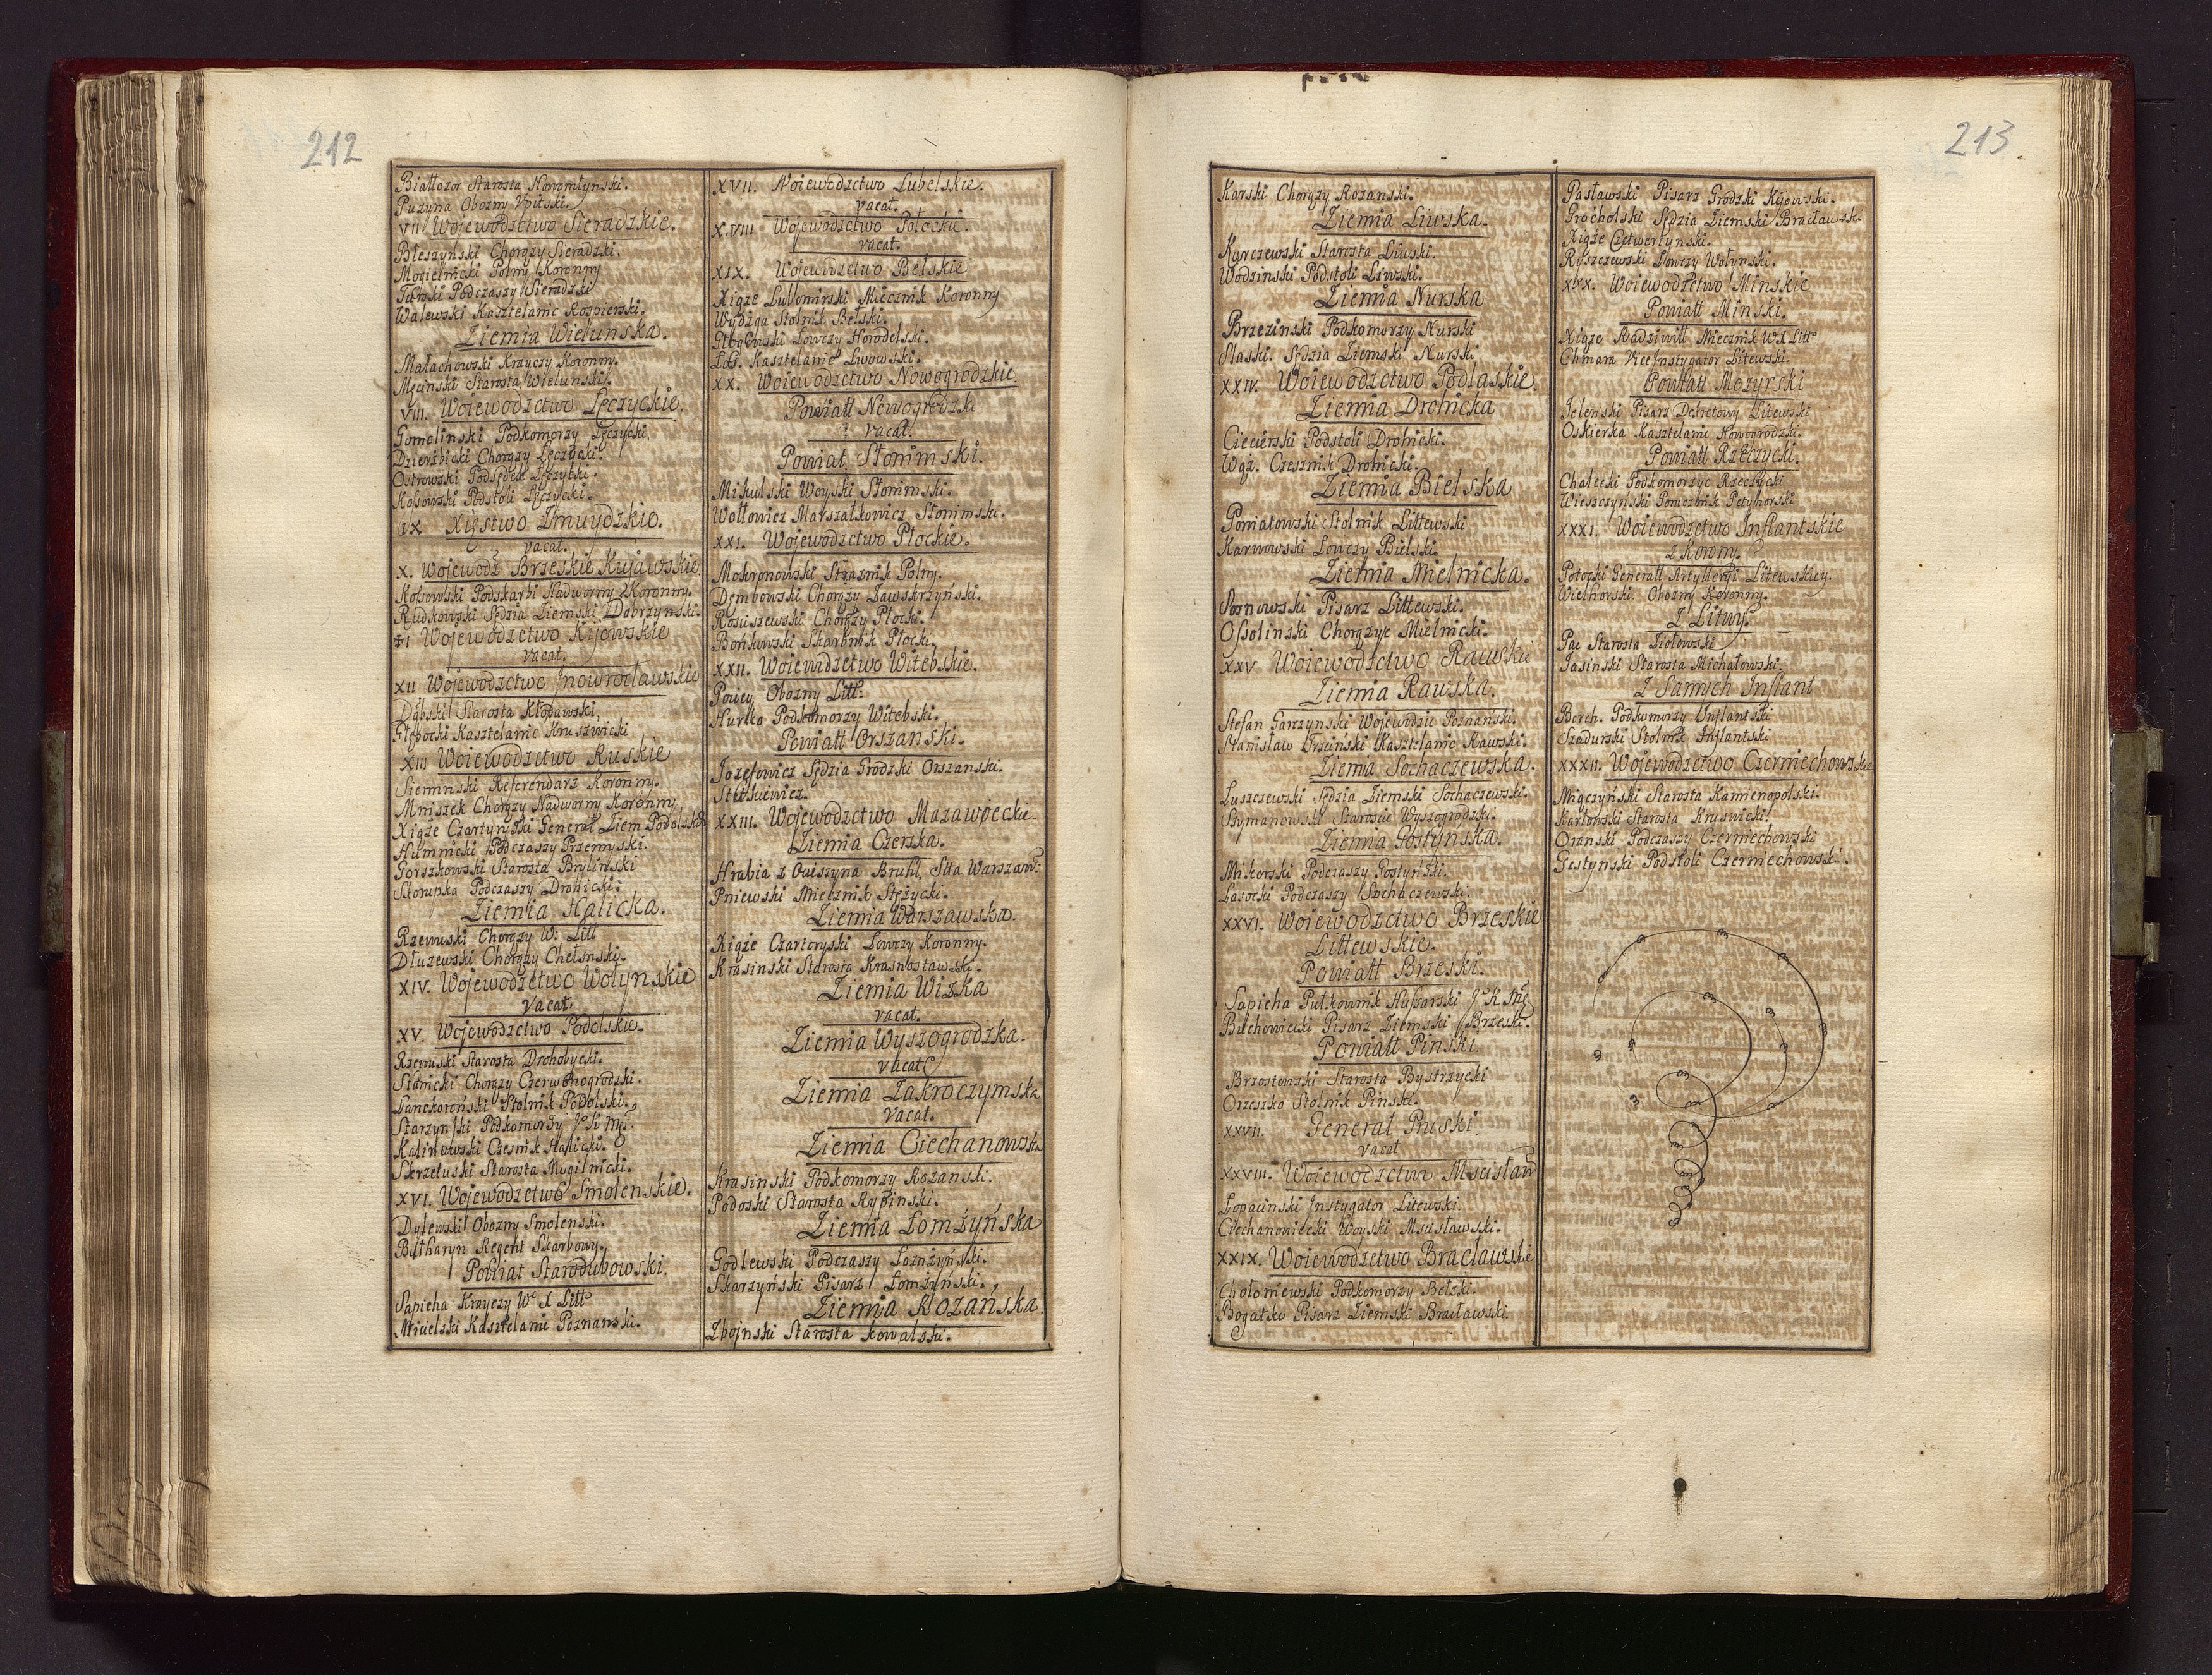 212
Białłozor Starosta Nowomłynski.
Puzyna Obozny Upitski.
VII Wojewodztwo Sieradzkie.
Błeszyński Chorąży Sieradzki.
Mogielnicki Polny Koronny
Turski Podczaszy Sieradzki
Walewski Kasztelanic Rospierski.
Ziemia Wielunska.
Małachowski Krayczy Koronny.
Męcinski Starosta Wielunski.
VIII. Wojewodztwo Łęczyckie.
Gomolinski Podkomorzy Łęczycki.
Dzierzbicki Chorąży Łęczycki.
Ostrowski Podsędek Łęczycki.
Kossowski Podstoli Łęczycki.
IX Xięstwo Zmuydzkie.
vacat.
X. Wojewodz. Brzeskie Kujawskie
Kossowski Podskarbi Nadworny Koronny.
Rudkowski Sędzia Ziemski Dobrzynski.
XI Wojewodztwo Kijowskie
vacat.
XII Wojewodztwo Jnowrocławskie
Dąbski Starosta Kłodawski.
Głębocki Kasztelanic Kruszwicki
XIII Wojewodztwo Ruskie
Sieminski Referendarz Koronny.
Mniszek Chorąży Nadworny Koronny
Xiąże Czartoryski Generał Ziem Podolskich
Humnicki Podczaszy Przemyski.
Gorszkowski Starosta Bryliński
Skorupka Podczaszy Drohicki.
Ziemia Halicka.
Rzewuski Chorąży W: Litt
Dłuzewski Chorąży Chełmski.
XIV. Wojewodztwo Wołynskie
vacat.
XV. Wojewodztwo Podolskie.
Rzewuski Starosta Drohobycki.
Stanicki Chorąży Czerwonogrodski.
Lanckoroński Stolnik Podolski.
Starzynski Podkomorzy J: K Mci.
Kalinowski Czesnik Halicki.
Skrzetuski Starosta Mogilnicki.
XVI. Wojewodztwo Smolenskie.
Dylewski Obozny Smolenski.
Bułharyn Regent Skarbowy.
Powiat Starodubowski.
Sapieha Krayczy W. X Litt
Mielski Kasztelanic Poznanski.
XVII. Wojewodztwo Lubelskie.
vacat.
XVIII Wojewodztwo Połockie.
vacat.
XIX. Wojewodztwo Bełskie
Xiąże Lubomirski Miecznik Koronny
Wydzga Stolnik Bełski.
Głogowski Łowczy Horodelski.
Łoś. Kasztelanic Lwowski.
XX. Wojewodztwo Nowogrodzkie.
Powiatt Nowogrodzki
vacat.
Powiat Słonimski.
Mikulski Woyski Słonimski.
Wołłowicz Marszałkowicz Słonimski.
XXI. Wojewodztwo Płockie.
Mokronowski Strażnik Polny.
Dembowski Chorąży Zawskrzyński.
Rosciszewski Chorąży Płocki.
Bońkowski Skarbnik Płocki.
XXII. Wojewodztwo Witebskie.
Pociey Obozny Litt:
Hurko Podkomorzy Witebski.
Powiatt Orszanski.
Jozefowicz Sędzia Grodzki Orszanski.
Stetkiewicz.
XXIII. Wojewodztwo Mazowieckie.
Ziemia Czerska.
Hrabia z Ociszyna Bruhl, Stta Warszaw:
Pniewski Miecznik Stężycki.
Ziemia Warszawska.
Xiąże Czartoryski Łowczy Koronny.
Krasinski Starosta Krasnostawski.
Ziemia Wizka
vacat.
Ziemia Wyszogrodzka.
vacat
Ziemia Zakroczymska
vacat.
Ziemia Ciechanowska
Krasinski Podkomorzy Rozanski.
Podoski Starosta Rypinski.
Ziemia Łomżyńska
Godlewski Podczaszy Łomżyński.
Skarzyński Pisarz Łomżyński.
Ziemia Rozańska.
Zboinski Starosta Kowalski.
213
Karski Chorąży Rozanski.
Ziemia Liwska.
Kyrczewski Starosta Liwski.
Wodzinski Podstoli Liwski.
Ziemia Nurska
Brzezinski Podkomorzy Nurski
Slaski. Sędzia Ziemski Nurski
XXIV. Wojewodztwo Podlaskie.
Ziemia Drohicka
Ciecierski Podstoli Drohicki.
Wąż. Czesznik Drohicki.
Ziemia Bielska
Poniatowski Stolnik Littewski
Karwowski Łowczy Bielski.
Ziemia Mielnicka.
Sosnowski Pisarz Littewski.
Ossolinski Chorążyc Mielnicki.
XXV Wojewodztwo Rawskie
Ziemia Rawska.
Stefan Garczynski Wojewodzic Poznanski.
Stanisław Trzciński Kasztelanic Rawski.
Ziemia Sochaczewska.
Luszczewski Sędzia Ziemski Sochaczewski.
Szymanowski Starościc Wyszogrodzki.
Ziemia Gostynska.
Mikorski Podczaszy Gostyński.
Lasocki Podczaszy Sochaczewski.
XXVI. Wojewodztwo Brzeskie
Littewskie.
Powiatt Brzeski.
Sapieha Pułkownik Hussarski J: K Mci
Buchowiecki Pisarz Ziemski Brzeski.
Powiatt Pinski.
Brzostowski Starosta Bystrzycki
Orzeszko Stolnik Pinski.
XXVII. Generał Pruski
vacat
XXVIII. Wojewodztwo Mscisław
Łopacinski Jnstygator Litewski.
Ciechanowiecki Woyski Mscisławski.
XXIX. Wojewodztwo Bracławskie
Chołoniewski Podkomorzy Bełzki.
Bogatko Pisarz Ziemski Bracławski.
Pasławski Pisarz Grodzki Kijowski.
Grocholski Sędzia Ziemski Bracławski
Xiąże Czetwertynski.
Ryszczewski Łowczy Wołynski.
XXX. Wojewodztwo Minskie
Powiatt Minski.
Xiąże Radziwiłł Miecznik W X Litto
Chmara ViceJnstygator Litewski.
Powiatt Mozyrski
Jelenski Pisarz Dekretowy Litewski
Oskierka Kasztelanic Nowogrodzki.
Powiatt Rzeczycki.
Chalecki Podkomorzyc Rzeczycki
Wieszczynski Porucznik Petyhorski
XXXI. Wojewodztwo Jnflantskie
z Korony.
Potocki Generałł Artylleryi Litewskiey.
Wielhorski. Obozny Koronny.
Z Litwy.
Pac Starosta Ziołowski
Jasinski Starosta Michałowski.
Z Samych Jnflant
Borch. Podkomorzy Jnflantski
Szadurski Stolnik Jnflantski
XXXII. Wojewodztwo Czerniechowskie
Miączyński Starosta Kamienopolski.
Karłowski Starosta Kruswicki.
Oranski Podczaszy Czerniechowski
Gostynski Podstoli Czerniechowski.